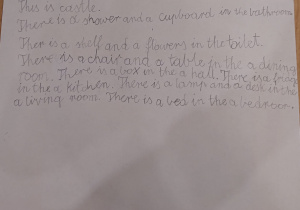 This is castle.
There is a shower and a cupboard in the bathroom.
Ther is a shelf and a flowers in the toilet.
There is a chair and a table in the a dining
room. There is a box in the a hall. There is a fridg
in the a kitchen. There is a lamp and a desk in the
a living room. There is a bed in the a bedroom.